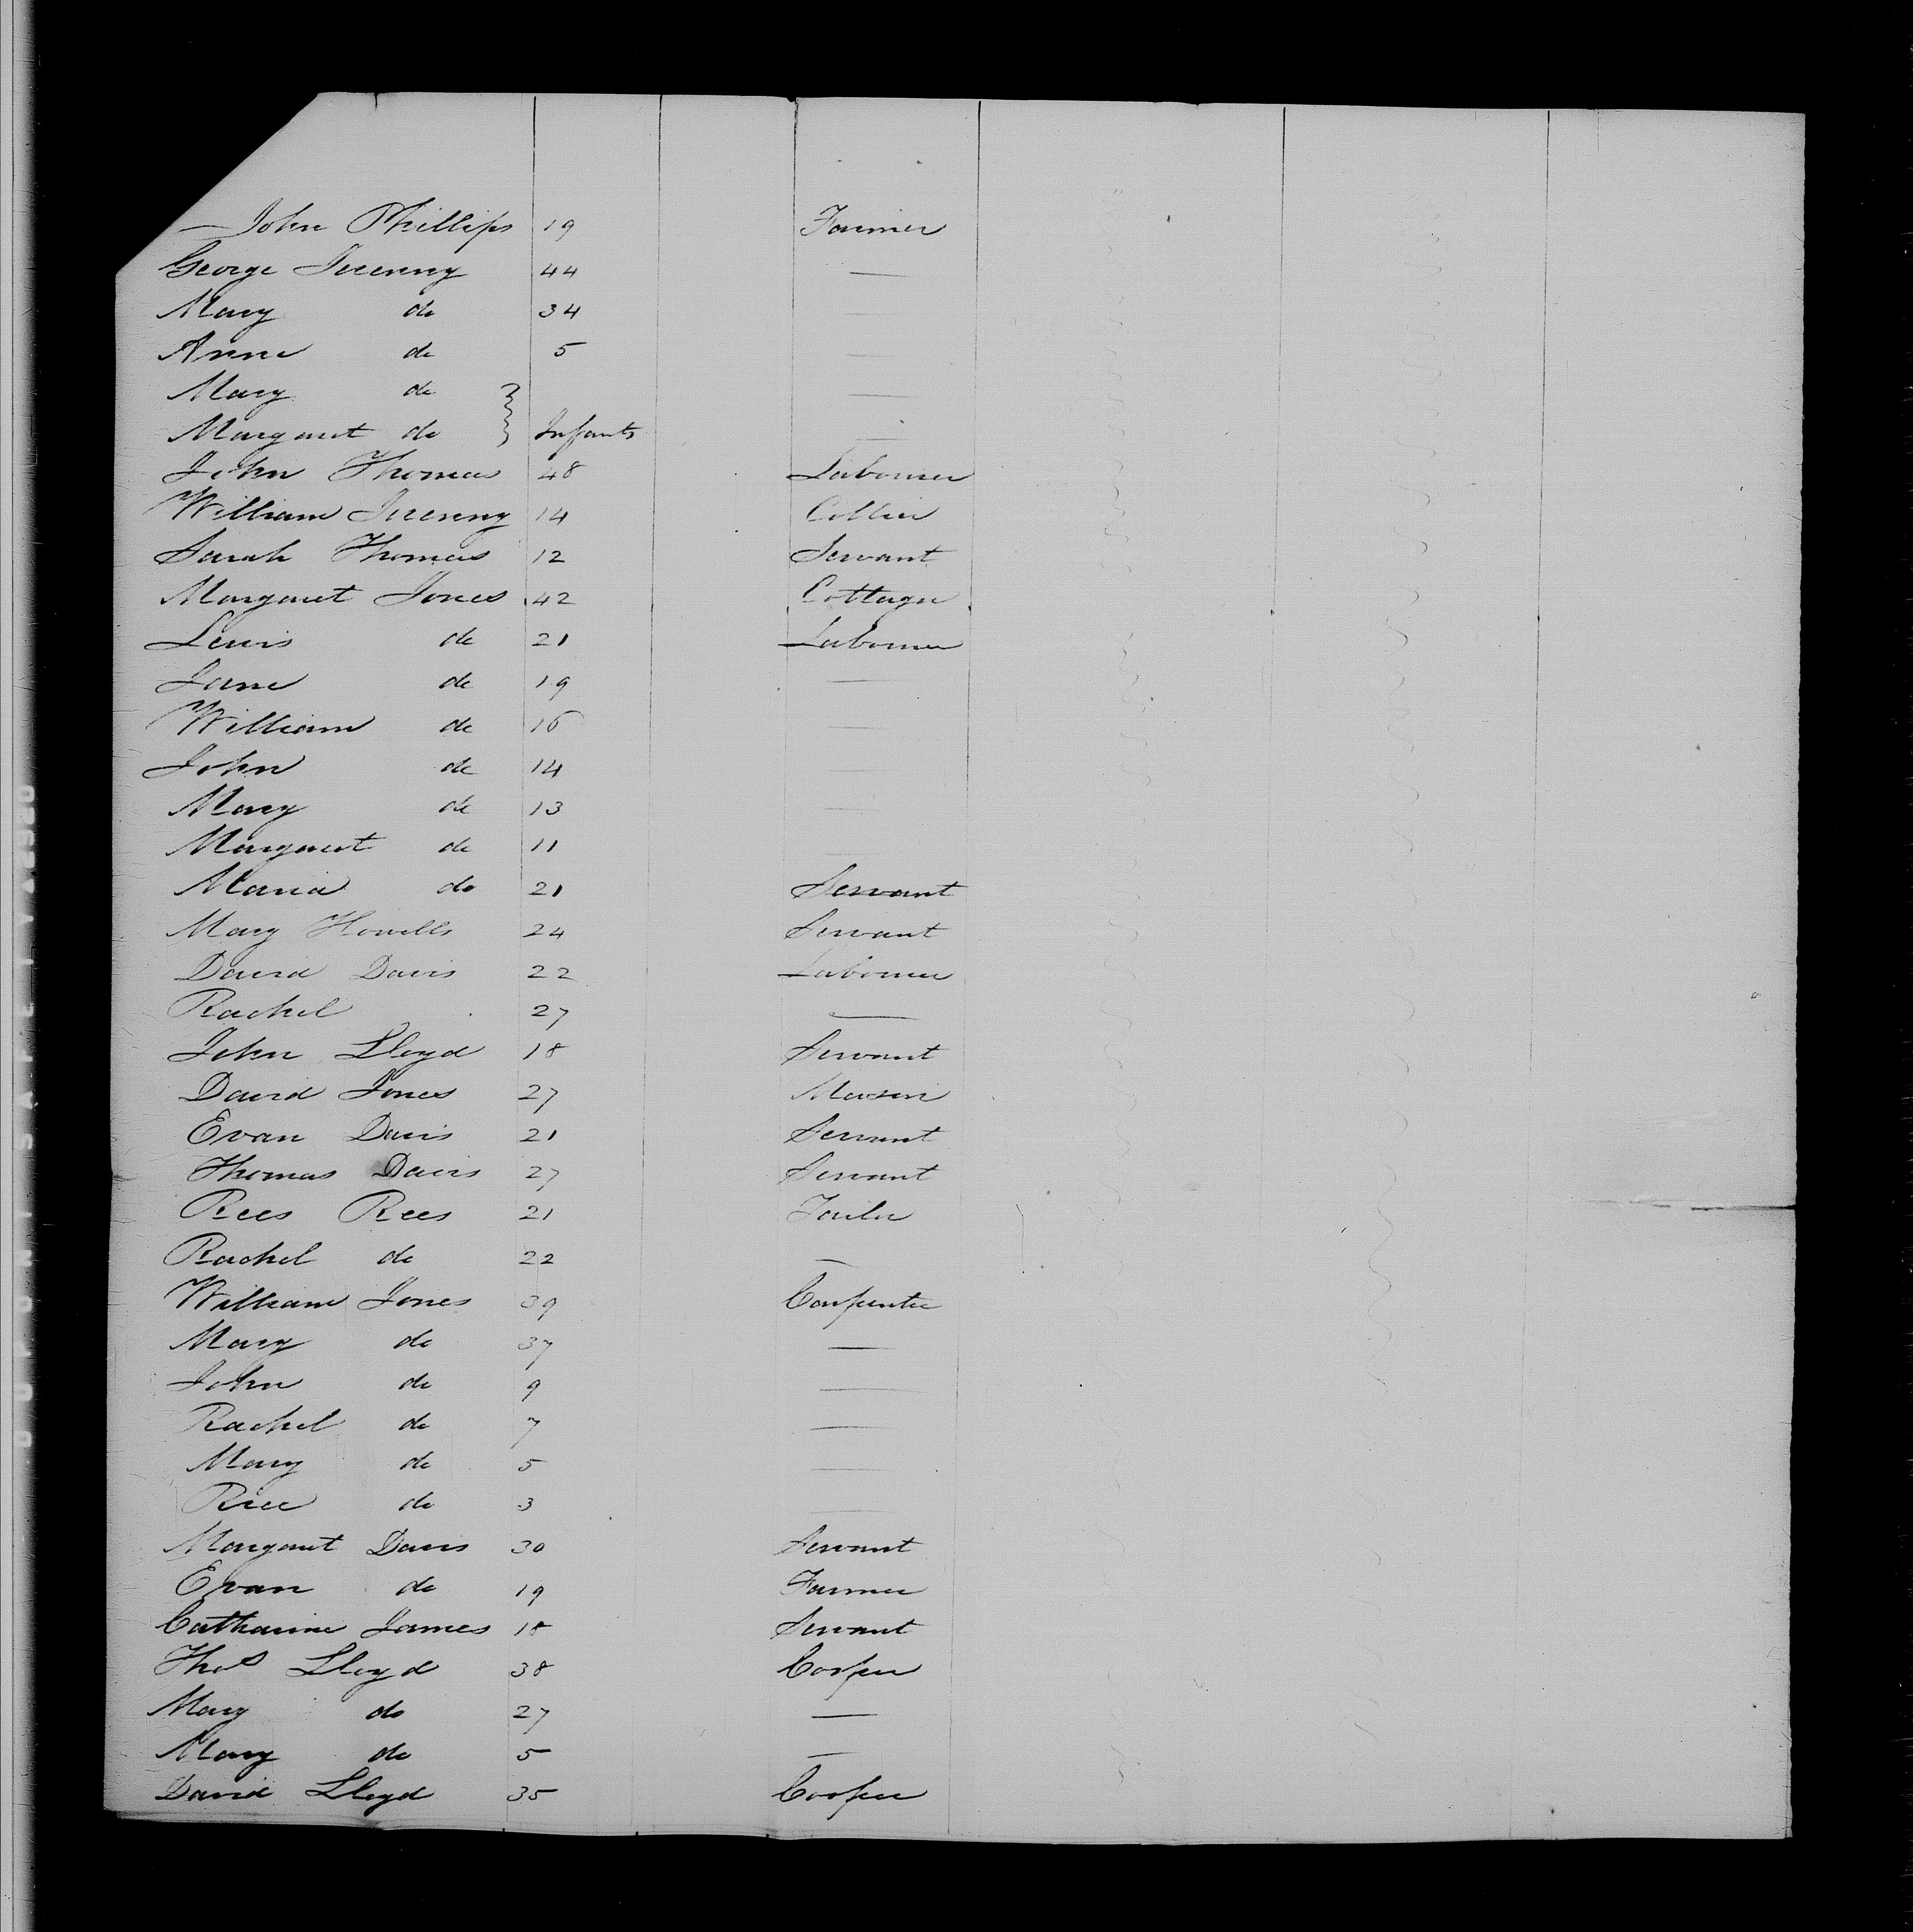 — John Phillips 19 Farmer
George 44 —
Mary do 34
Anne do 5 —
Mary do —
Margaret do } Infants —
John Thomas 48 Labourer
William 14 Collier
Sarah Thomas 12 Servant
Margaret Jones 42 Cottager
Lewis do 21 Labourer
Jane do 19 —
William do 16 —
John do 14 —
Mary do 13 —
Margaret do 11 —
Maria do 21 Servant
Mary Howells 24 Servant
David Davis 22 Labourer
Rachel 27 —
John Lloyd 18 Servant
David Jones 27 Mason
Evan Davis 21 Servant
Thomas Davis 27 Servant
Rees Rees 21 Tailor
Rachel do 22 —
William Jones 39 Carpenter
Mary do 37 —
John do 9 —
Rachel do 7 —
Mary do 5 —
Rice do 3 —
Margaret Davis 30 Servant
Evan do 19 Farmer
Catharine James 18 Servant
Thos Lloyd 38 Cooper
Mary do 27 —
Mary do 5 —
David Lloyd 35 Cooper